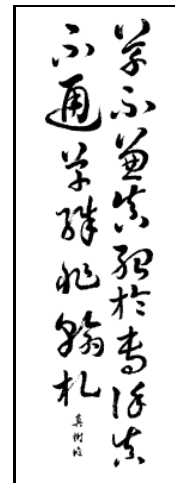 草不兼真殆於専謹真
不通草殊非翰札
真樹